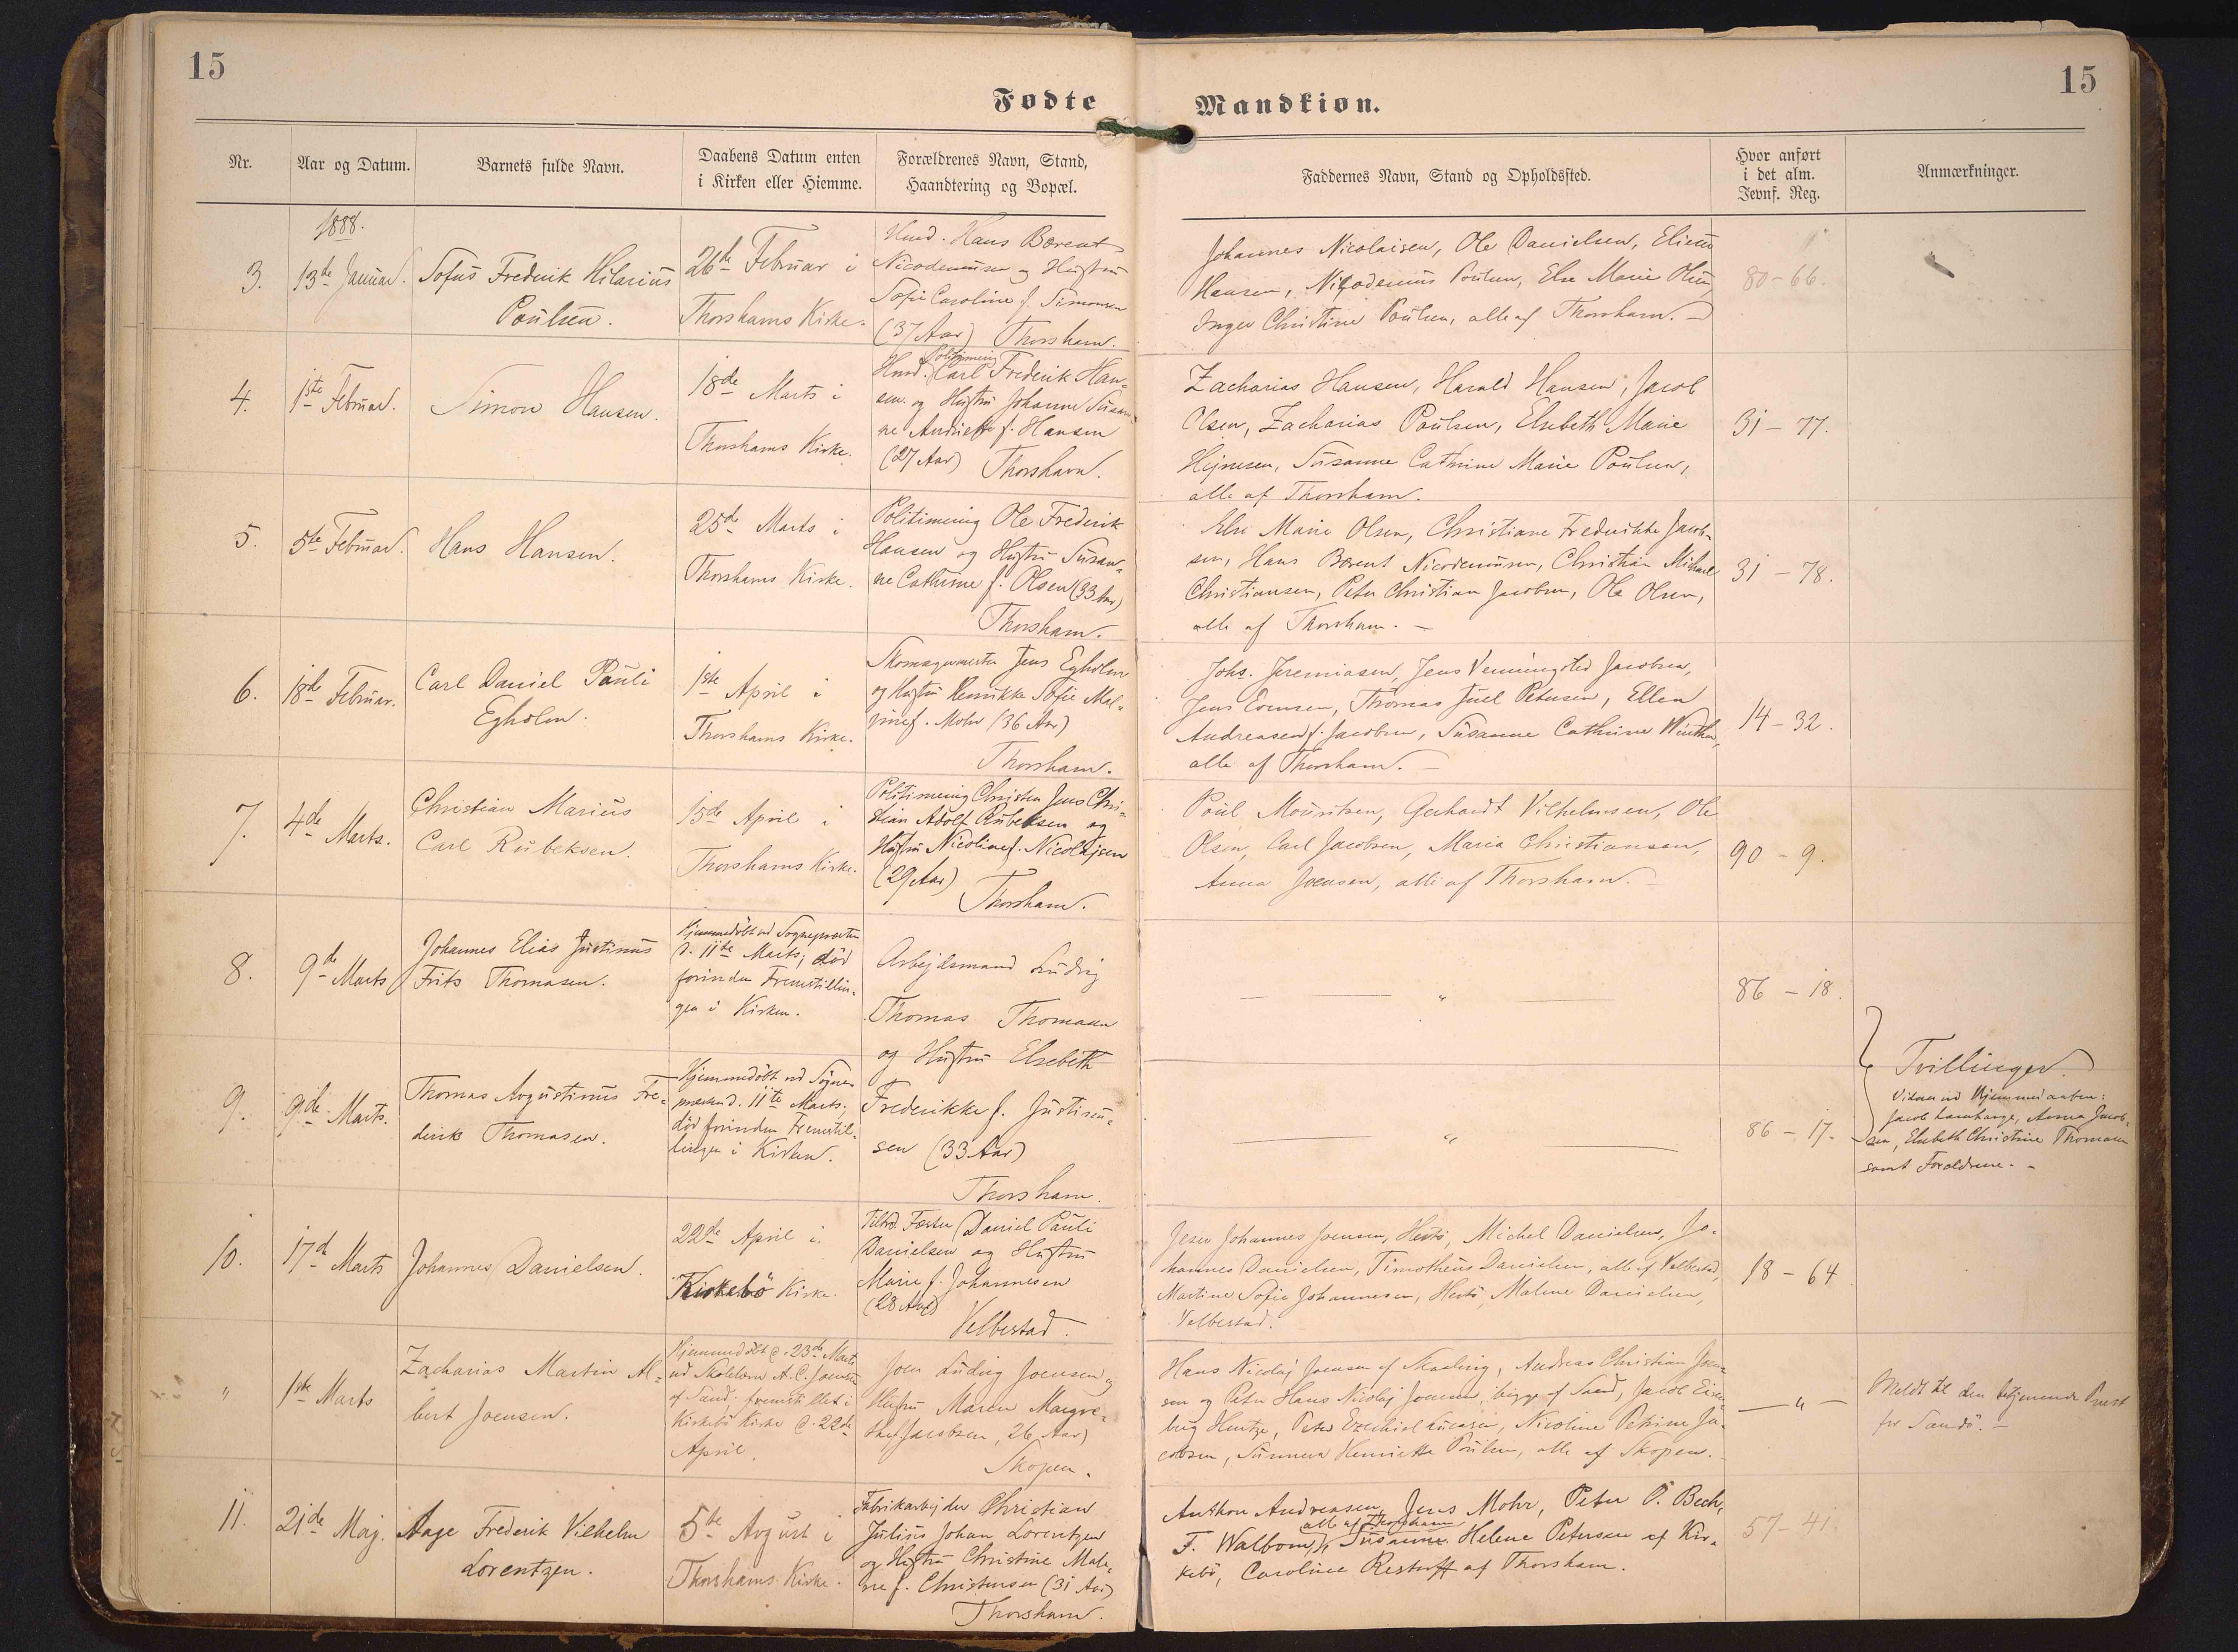 15
15
Fødte
Mandkiøn.
Nr.
Aar og Datum.
Barnets fulde Navn.
Daabens Datum enten
i Kirken eller Hiemme.
Forældrenes Navn, Stand,
Haandtering og Bopæl.
Faddernes Navn, Stand og Opholdssted.
Hvor anført
i det alm.
Jevnf. Reg.
Anmærkninger.
1888.
3.
13de Januar.
Sofus Frederik Hilarius
Poulsen.
26de Februar i
Thorshavns Kirke.
Hmd. Hans Berent
Nicodemusen og Hustru
Sofie Caroline f. Simonsen
(37 Aar) Thorshavn.
Johannes Nicolaisen, Ole Danielsen,
Hansen, Nicodemus Poulsen, Else Marie Olsen,
Inger Christine Poulsen, alle af Thorshavn. —
80 - 66.
4.
1ste Februar.
Simon Hansen.
18de Marts i
Thorshavns Kirke.
Politimening
Hmd. Carl Frederik Han-
sen og Hustru Johanne Susan-
ne Andriette f. Hansen
(27 Aar) Thorshavn.
Zacharias Hansen, Harald Hansen, Jacob
Olsen, Zacharias Poulsen, Elsebeth Marie
Hejnesen, Susanne Cathrine Marie Poulsen,
alle af Thorshavn.
31 - 77.
5.
5te Februar.
Hans Hansen.
25de Marts i
Thorshavns Kirke.
Politimening Ole Frederik
Hansen og Hustru Susan-
ne Cathrine f. Olsen (33 Aar)
Thorshavn.
Else Marie Olsen, Christiane Frederikke Jacob-
sen, Hans Berent Nicodemusen, Christian Michael
Christiansen, Peter Christian Jacobsen, Ole Olsen,
alle af Thorshavn. —
31 - 78.
6.
18de Februar.
Carl Daniel Pauli
Egholm.
1ste April i
Thorshavns Kirke.
Skomagermester Jens Egholm
og Hustru Henrikke Sofie Mal-
f. Mohr (36 Aar)
Thorshavn.
Johs. Jeremiasen, Jens Venningsted Jacobsen,
Jens Joensen, Thomas Juel Petersen, Ellen
Andreasen f. Jacobsen, Susanne Cathrine Winther,
alle af Thorshavn. —
14 - 32.
7.
4de Marts.
Christian Marius
Carl Rubeksen.
15de April i
Thorshavns Kirke.
Politimening Christen Jens Chri-
stian Adolf Rubeksen og
Hustru Nicoline f. Nicolajsen
(29 Aar)
Thorshavn.
Poul Mouritsen, Gerhardt Vilhelmsen, Ole
Olsen, Carl Jacobsen, Maria Christiansen,
Anna Joensen, alle af Thorshavn. —
90 - 9.
8.
9de Marts
Johannes Elias Justinus
Frits Thomasen.
Hjemmedöbt ved Sognepræsten
d. 11te Marts; död
forinden Fremstillin-
gen i Kirken.
Arbejdsmand Ludvig
Thomas Thomasen
og Hustru Elsebeth
Frederikke f. Justinu-
sen (33 Aar)
Thorshavn.
— — " —
86 - 18.
9.
9de Marts.
Thomas Augustinus Fre-
derik Thomasen.
Hjemmedöbt ved Sogne-
præsten d. 11te Marts;
död forinden Fremstil-
lingen i Kirken.
— " —
86 - 17.
Tvillinger.
Vidner ved Hjemmedaaben:
Jacob Lamhauge, Anna Jacob-
sen, Elsebeth Christine Thomasen
samt Forældrene. -
10.
17de Marts
Johannes Danielsen.
22de April i
Kirkebö Kirke.
Tilhd. Fæster Daniel Pauli
Danielsen og Hustru
Marie f. Johannesen
(28 Aar)
Velbestad.
Johannes Joensen, Hestö, Michel Danielsen, Jo-
hannes Danielsen, Timotheus Danielsen, alle af Velbestad,
Martine Sofie Johannesen, Hestö, Malene Danielsen,
Velbestad.
18 - 64
"
1ste Marts
Zacharias Martin Al-
bert Joensen.
Hjemmedöbt d. 23de Marts
ved Skolelærer A. C. Joensen
af Sand; fremstillet i
Kirkebö Kirke d. 22de
April.
Joen Ludvig Joensen og
Hustru Maren Margre-
the f. Jacobsen, 26 Aar)
Skopen.
Hans Nicolaj Joensen af Skaaling, Andreas Christian Joen-
sen og Peter Hans Nicolaj Joensen, begge af Sand, Jacob Eisen-
berg Hentze, Peter Ezechiel Lucasen, Nicoline Petrine Ja-
cobsen, Sunneva Henriette Poulsen, alle af Skopen.
— " —
Meldt til den betjenende Præst
for Sandö. —
11.
21de Maj.
Aage Frederik Vilhelm
Lorentzen.
5te August i
Thorshavns Kirke.
Fabrikarbejder Christian
Julius Johan Lorentzen
og Hustru Christine Male-
ne f. Christensen (31 Aar)
Thorshavn.
Anthon Andreasen, Jens Mohr, Peter O. Bech,
alle af Thorshavn
F. Walbom, Susanne Helene Petersen af Kir-
kebö, Caroline Restorff af Thorshavn.
57 - 41.